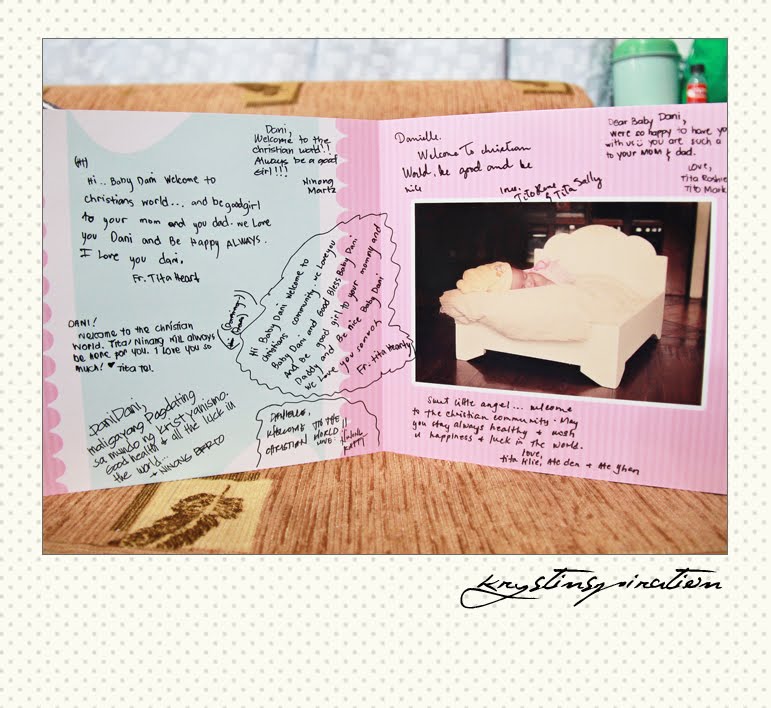 Dani,
Welcome to the
christian world!!
Always be a good
girl!!!
Ninong
Martz
(Hi)
Hi.. Baby Dani welcome to
christians world... and be good girl
to your mom and you dad. we love
you Dani and Be Happy ALWAYS.
I Love you dani.
Fr. Tita Heart
DANI!
Welcome to the christian
world. Tita/Ninang will always
be here for you. I love you so
much! ♥ Tita Tal.
DaniDani,
maligayang Pagdating
sa mundo ng kristyanismo.
Good health & all the luck in
the world...
+ NINONG
Hi Baby Dani Welcome to
christians community. we love you
Baby Dani and Good Bless Baby Dani
And be good girl to your mommy and
Daddy and Be nice Baby Dani
we Love you
Fr. tita Heart
DANIELLE,
WELCOME TO THE
CHRISTIAN WORLD!!
LOVE:
Danielle.
Welcome To christian
World. be good and be
nice
Love:
Tito Rene
& Tita Sally
Dear Baby Dani,
We're so happy to have yo
with us you are such a
to your MOM & dad.
Love,
Tita
Tito Mark
Sweet little angel... welcome
to the christian community. May
you stay always healthy & wish
u happiness & luck in the world.
love,
Tita Klie, Ate den & Ate ghen
krystinspiration